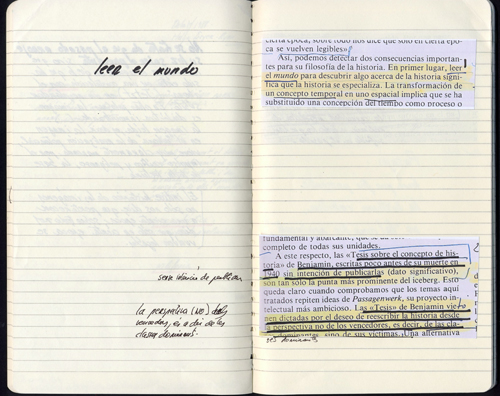 leer el mundo
sense intenció de publicar
la perspectiva (no) dels
vencedors, és a dir de les
classes dominants.
cierta época, sobre todo nos dice que sólo en cierta épo-
ca se vuelven legibles»
Así, podemos detectar dos consecuencias importan-
tes para su filosofía de la historia. En primer lugar, leer
el mundo para descubrir algo acerca de la historia signi-
fica que la historia se especializa. La transformación de
un concepto temporal en uno espacial implica que se ha
substituido una concepción del tiempo como proceso o
fundamental y abarcante, que se da
completo de todas sus unidades.
A este respecto, las «Tesis sobre el concepto de his-
toria» de Benjamin, escritas poco antes de su muerte en
1940 sin intención de publicarlas (dato significativo),
son tan sólo la punta más prominente del iceberg. Esto
queda claro cuando comprobamos que los temas aquí
tratados repiten ideas de Passagenwerk, su proyecto in-
telectual más ambicioso. Las «Tesis» de Benjamin vie-
nen dictadas por el deseo de reescribir la historia desde
la perspectiva no de los vencedores, es decir, de las cla-
dominantes sino de sus víctimas. Una alternativa